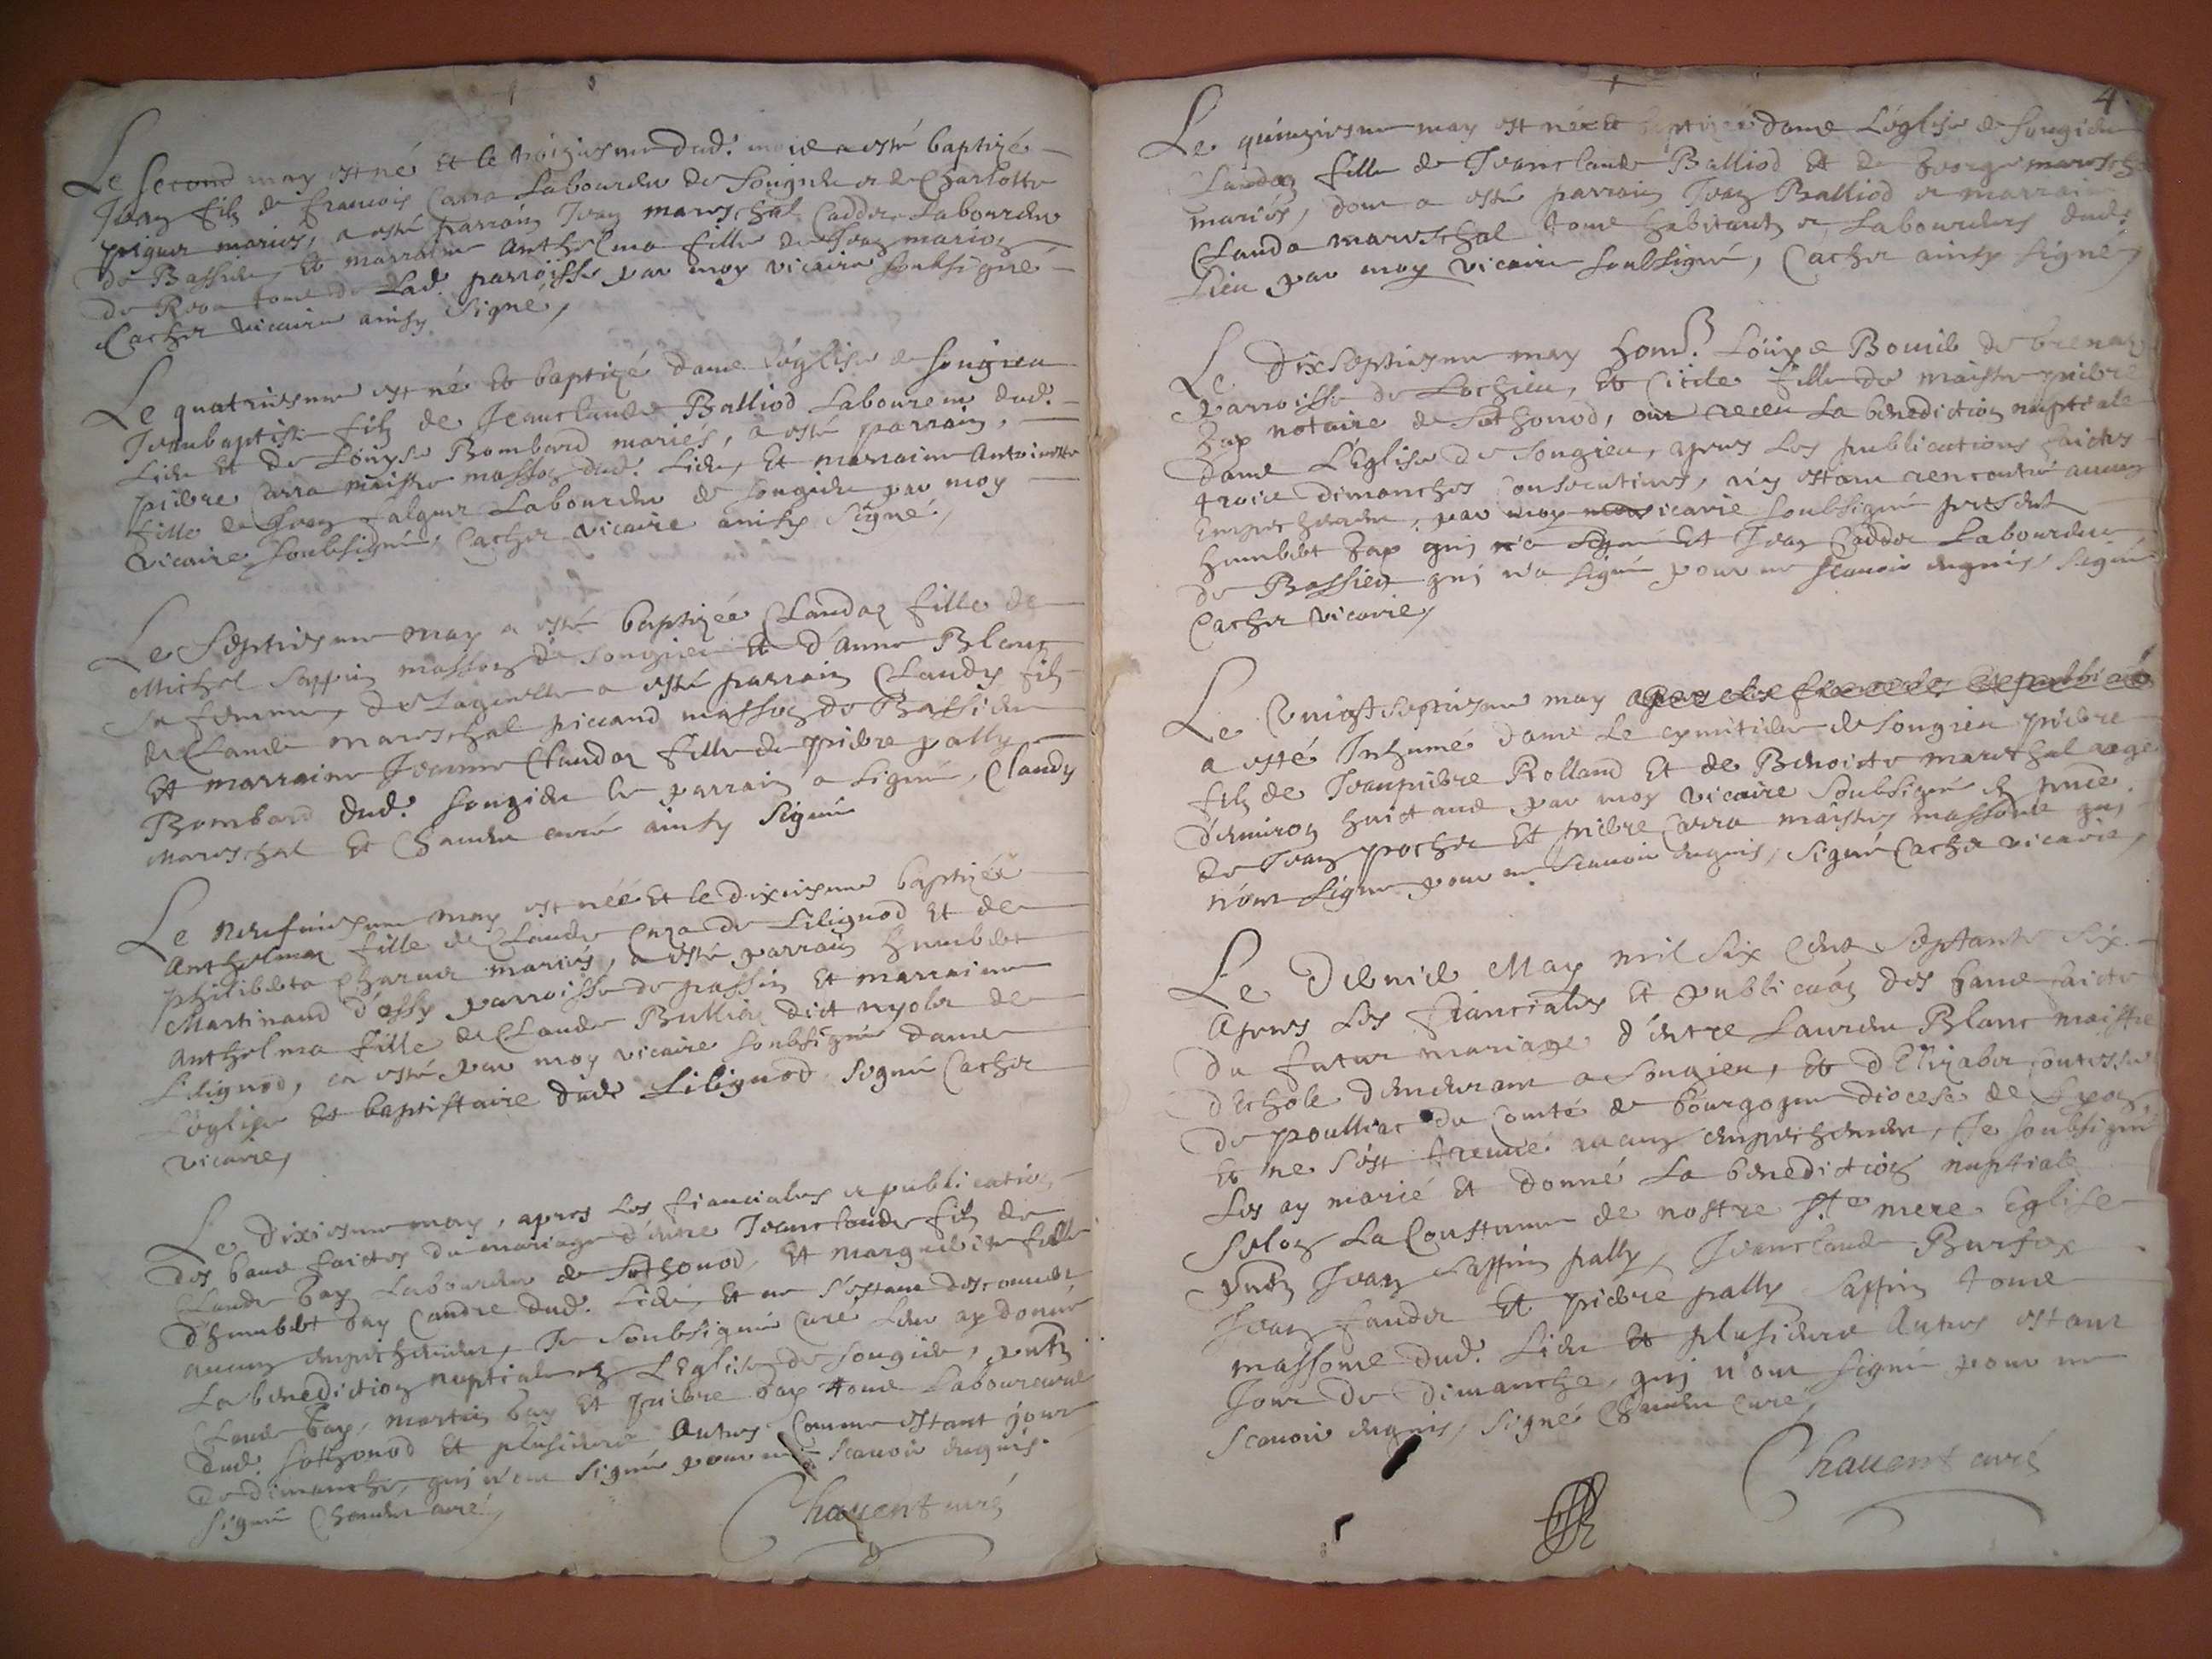 Le second may est né et le troiziesme dud. mois a esté baptizé
Jean filz de francois Carra Laboureur de Songieu et de Charlotte
mariés, a esté parrain Jean mareschal Caddoz Laboureur
de Bassieu, et marraine Anthelma fille de Jean marion
de tous de Lad. parroisse par moy vicaire soubsigné
Cacher vicaire ainsy signé,
Le quatriesme est né et baptizé dans l'église de songieu
Jeanbaptiste filz de Jeanclaude Balliod Laboureur dud.
Lieu et de Löuyse Bombard mariés, a esté parrain,
pierre Carra maistre masson dud. Lieu, et marraine Antoinette
fille de Jean falquet Laboureur de Songieu par moy
vicaire soubsigné, Cacher vicaire ainsy signé,
Le septiesme may a esté baptizée Clauda fille de
Michel Sappin masson de songieu et d'anne Blanc
sa femme, de Laquelle a esté parrain Claudy filz
de Claude mareschal piccand masson de Bassieu
et marraine Jeanne Clauda fille de pierre pally
Bombard dud. songieu le parrain a signé, Claudy
mareschal et Chauent curé ainsy signé
Le neufuiesme may est néé et le dixiesme baptizée
Anthelma fille de Claude de Lilignod et de
philiberta mariés, a esté parrain humbert
Martinand d'ossy parroisse de passin et marraine
anthelma fille de Claude Bullia dict nyolet de
Lilignod, ca esté par moy vicaire soubsigné dans
l'église et baptistaire dud. Lilignod signé Cacher
vicaire,
Le dixiesme may, apres les fianciales et publication
des bans faictes du mariage d'entre Jeanclaude filz de
Claude bay Laboureur de Sothonod, et marguerite fille
d'humbert bay Candre dud. Lieu, et ne s'estant descouuert
aucun empechement, Je soubsigné curé leur ay donné
La benediction nuptiale en L'Eglise de songieu, pntz
Claude bay, martin bay et pierre bay tous Laboureurs
dud. Sothonod et plusieurs autres comme estant jour
de dimanche, qui n'ont signé pour ne scauoir enquis.
signé Chauent curé,
Chauent curé
4
Le quinziesme may est néé et baptizée dans L'église de songieu
Claudaz fille de Jeanclaude Balliod et de george maresch
mariés, dont a esté parrain Jean Balliod et marraine
Clauda mareschal tous habitants et Laboureurs dud.
Lieu par moy vicaire soubsigné, Cacher ainsy signé,
Le dixseptiesme may hon. Löüys Bouuié de brenaz
parroisse de Lochieu, et fille de maistre pierre
Zap notaire de Sothonod, ont receu La benediction nuptiale
dans L'Eglise de songieu, apres les publications faictes
trois dimanches consecutiues, n'y estant rencontré aucun
Empechement, par vicaire soubsigné present
humbert Zap qui a signé et Jean Caddoz Laboureur
de Bassieu qui n'a signé pour ne scauoir enquis, signé
Cacher vicaire,
Le vingtseptiesme may
a esté Inhumé dans le cymitiere de songieu pierre
filz de Jeanpierre Rolland et de Benoicte mareschal aagé
d'enuiron huict ans par moy vicaire soubsigné en pnce
de Jean pocher et pierre Carra maistres massons qui
n'ont signé pour ne scauoir enquis, signé Cacher vicaire,
Le Dernier May mil six Cent septante six
Apres les fianciales et publicaōn des bans faicte
du futur mariage d'entre Laurent Blanc maistre
d'Echole demeurant a Songieu, et d'Elizabet
de poulliac du Comté de bourgogne diocese de Lyon
et ne s'est treuué aucun empechement, Je soubsigné
Les ay marié et donné La benediction nuptiale
selon La Coustume de nostre Ste mere Eglise
pntz Jean Sappin pally, Jeanclaude Burfex
Jean et pierre pally Sappin tous
massons dud. Lieu et plusieurs Autres estant
Jour de Dimanche, qui n'ont signé pour ne
scauoir enquis, signé Chauent curé,
Chauent curé